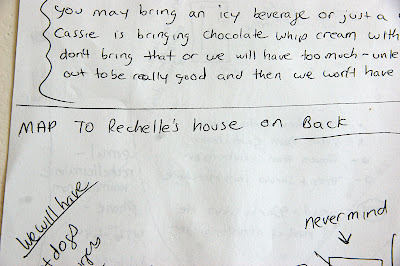 you may bring an icy beverage or just a
Cassie is bringing chocolate whip cream with
don't bring that or we will have too much - unle
out to be really good and then we won't have
MAP TO Rechelle's house on Back
we will have
nevermind
dogs